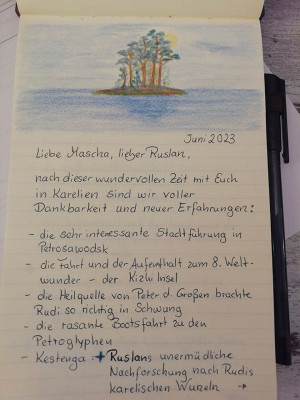 Juni 2023
Liebe Mascha, lieber Ruslan,
nach dieser wundervollen Zeit mit Euch
in Karelien sind wir voller
Dankbarkeit und neuer Erfahrungen:
- die sehr interessante Stadtführung in
Petrosawodsk
- die Fahrt und der Aufenthalt zum 8. Welt-
wunder - der Kizhi Insel
- die Heilquelle von Peter d. Großen brachte
Rudi so richtig in Schwung
- die rasante Bootsfahrt zu den
Petroglyphen
- Kestenga + Ruslans unermüdliche
Nachforschung nach Rudis
karelischen Wurzeln →